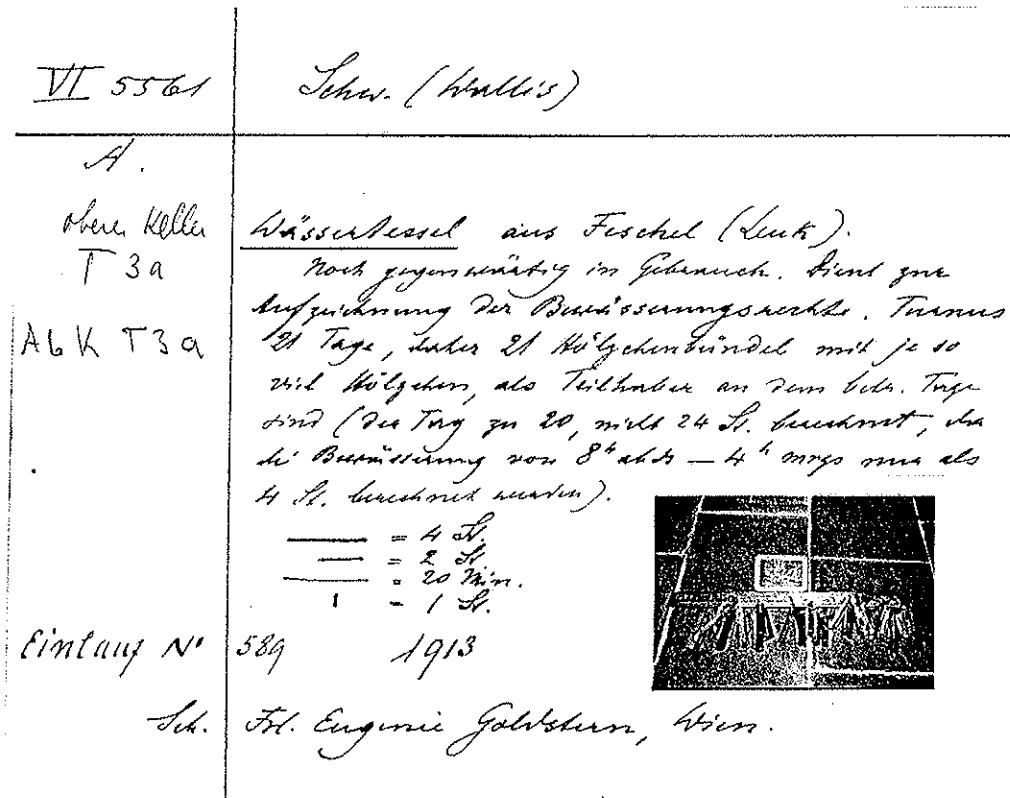 VI 5561
Schw. (Wallis)
A.
oberer Keller
T 3a
AbK T3a
Wässertessel aus Feschel (Leuk).
Noch gegenwärtig in Gebrauch. Dient zur
Aufzeichnung der Bewässerungsrechte. Turnus
21 Tage, daher 21 Hölzchenbündel mit je so
viel Hölzchen, als Teilhaber an dem betr. Tage
sind (der Tag zu 20, nicht 24 St. berechnet, da
die Bewässerung von 8h abds — 4h mrgs nur als
4 St. berechnet werden).
= 4 St.
= 2 St.
= 20 Min.
= 1 St.
Einlauf No 589 1913
Sch. Frl. Eugenie Goldstern, Wien.